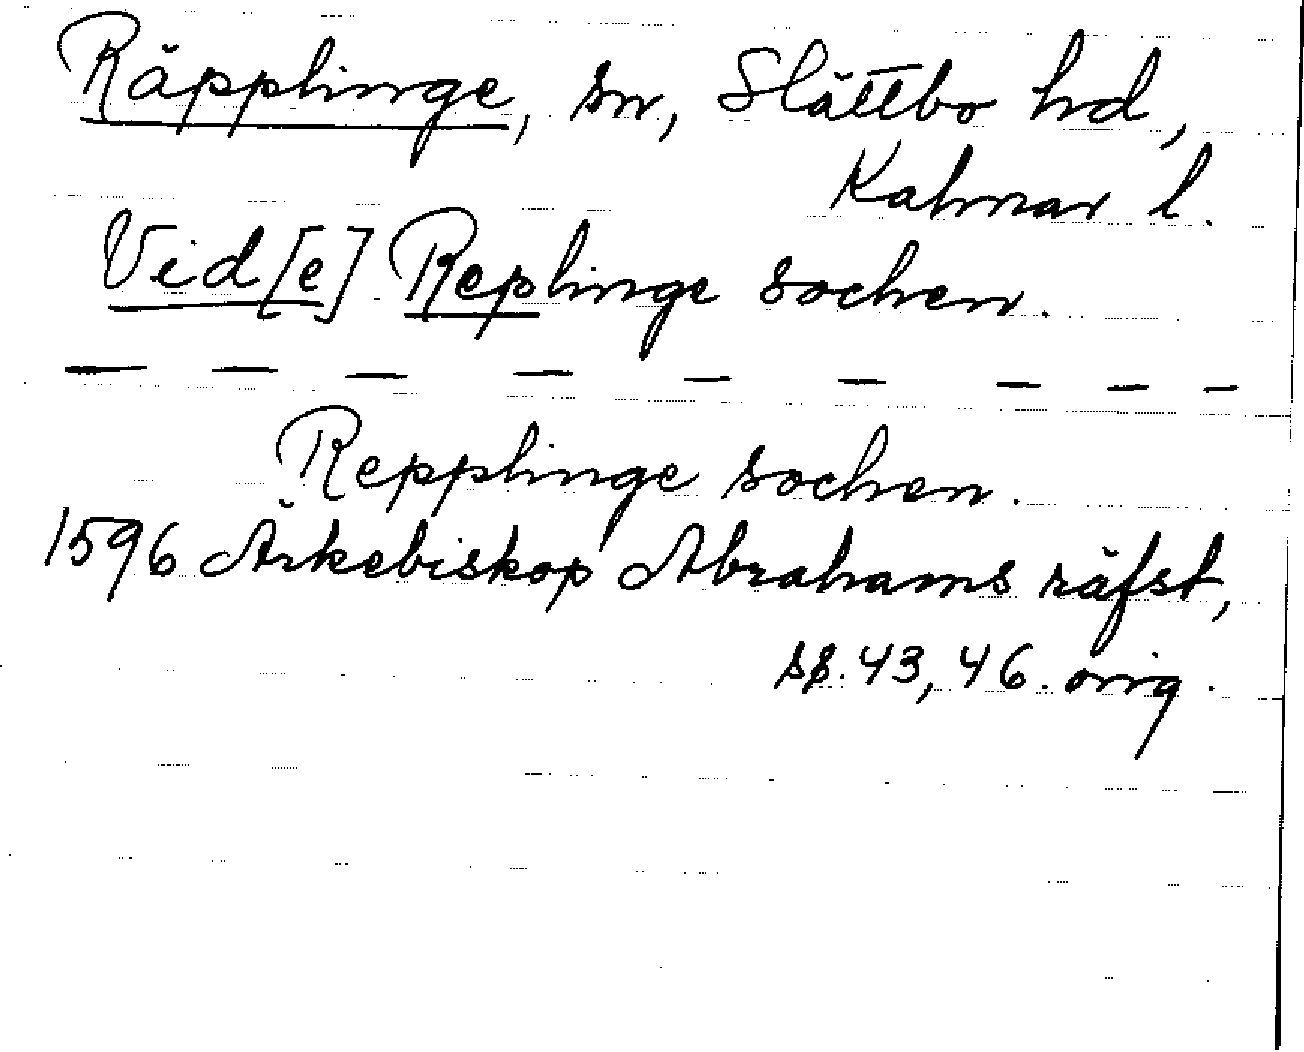 Räpplinge, sn, Slättbo hd,
Kalmar l.
Vid[e] Replinge sochen.
Repplinge sochen.
1596 Ärkebiskop Abrahams räfst,
ss. 43, 46. orig.